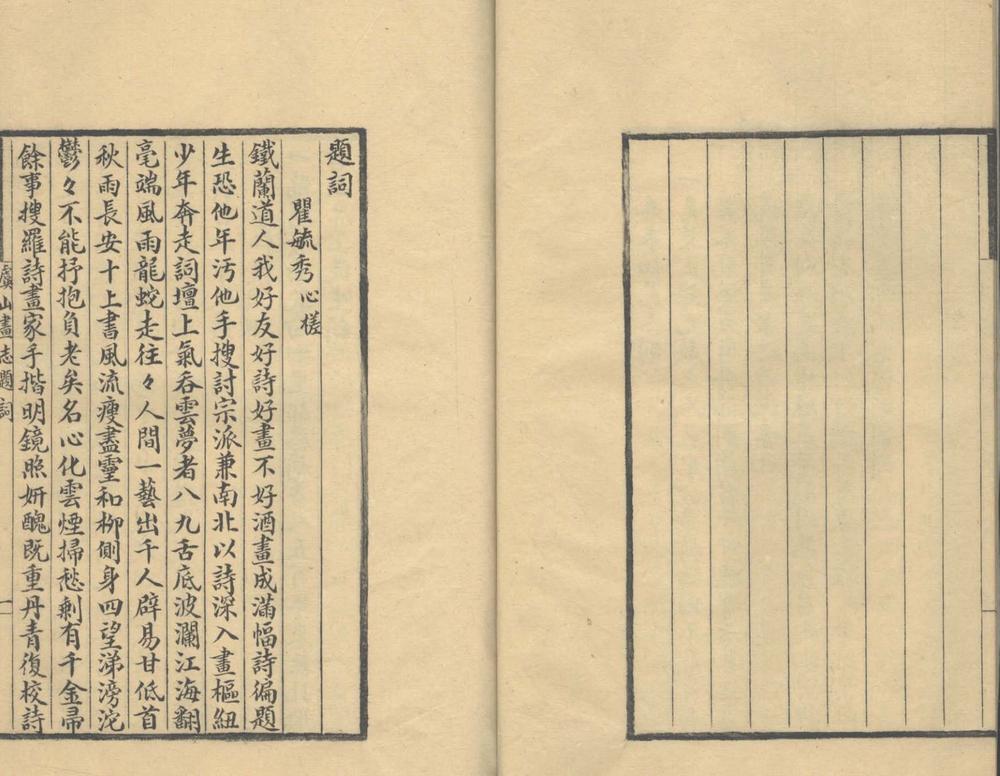 題詞
瞿毓秀心槎
鐵蘭道人我好友好詩好畫不好酒畫成滿幅詩徧題
生恐他年汚他手搜討宗派兼南北以詩深入畫樞紐
少年奔走詞壇上氣吞雲夢者八九舌底波瀾江海翻
毫端風雨龍蛇走往々人間一藝出千人辟易甘低首
秋雨長安十上書風流瘦盡靈和柳側身四望涕滂沱
鬱々不能抒抱負老矣名心化雲煙掃愁剩有千金帚
餘事搜羅詩畫家手揩明鏡照妍醜既重丹青復校詩
虞山畫志題詞
一